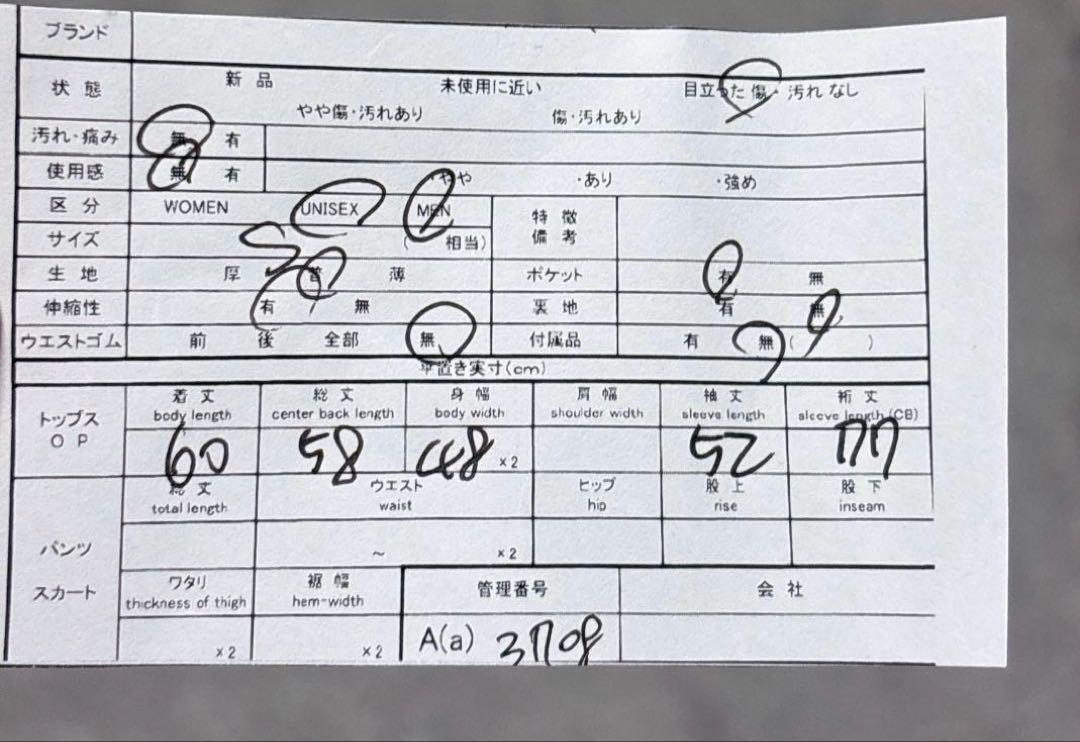 ブランド
状態 新品 未使用に近い 目立った傷・汚れなし
やや傷・汚れあり 傷・汚れあり
汚れ・痛み 無 有
使用感 無 有 ・やや ・あり ・強め
区分 WOMEN UNISEX MEN 特徴
備考
サイズ S ( 相当)
生地 厚 普 薄 ポケット 有 無
伸縮性 有 無 裏地 有 無
ウエストゴム 前 後 全部 無 付属品 有 無 ( )
平置き実寸(cm)
トップス
OP
着丈 総丈 身幅 肩幅 袖丈 裄丈
body length center back length body width shoulder width sleeve length sleeve length (CB)
60 58 48 ×2 52 77
パンツ
スカート
総丈 ウエスト ヒップ 股上 股下
total length waist hip rise inseam
~ ×2
ワタリ 裾幅 管理番号 会社
thickness of thigh hem-width
×2 ×2 A(a) 3708